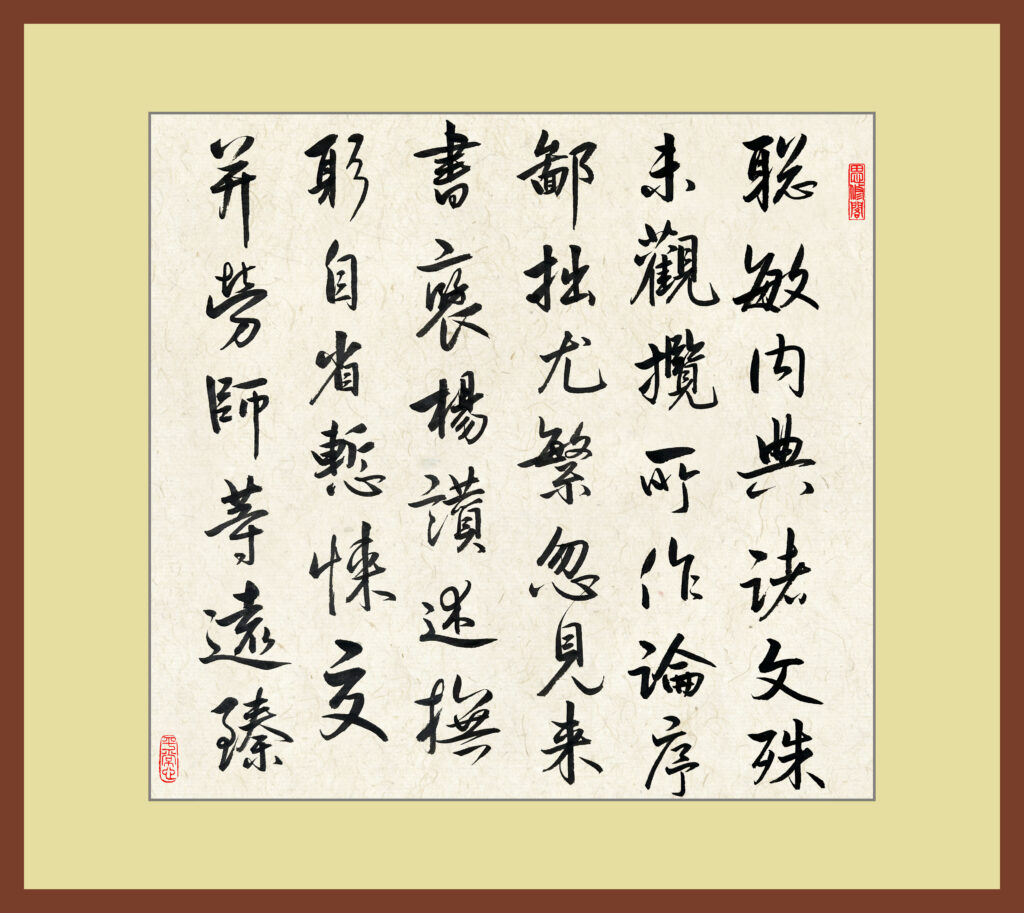 思修閣
聡敏内典諸文殊
未觀攬所作論序
鄙拙尤繁忽見来
書褒楊讚述撫
躬自省慙悚交
并勞師等遠臻
平常心